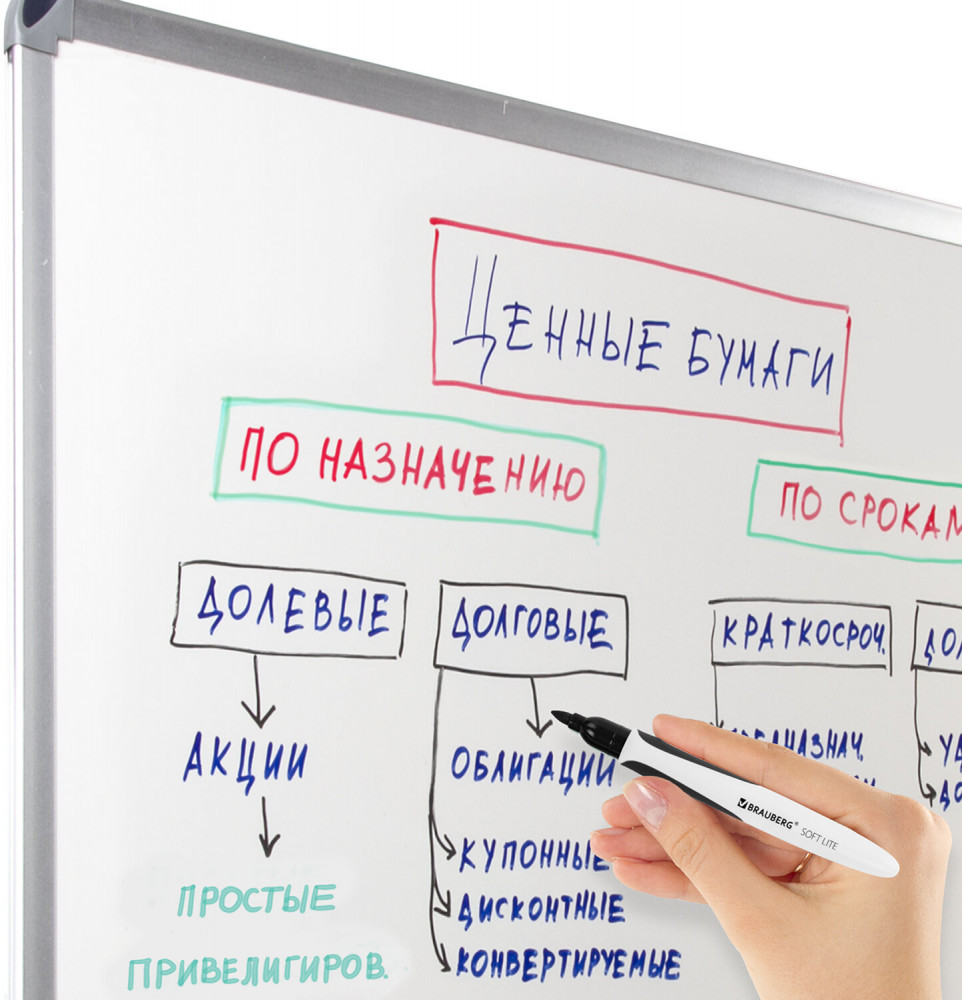 ЦЕННЫЕ БУМАГИ
ПО НАЗНАЧЕНИЮ
ПО СРОКАМ
ДОЛЕВЫЕ
ДОЛГОВЫЕ
КРАТКОСРОЧ.
АКЦИИ
ОБЛИГАЦИИ
КУПОННЫЕ
ДИСКОНТНЫЕ
КОНВЕРТИРУЕМЫЕ
ПРОСТЫЕ
ПРИВЕЛИГИРОВ.
BRAUBERG® SOFT LITE